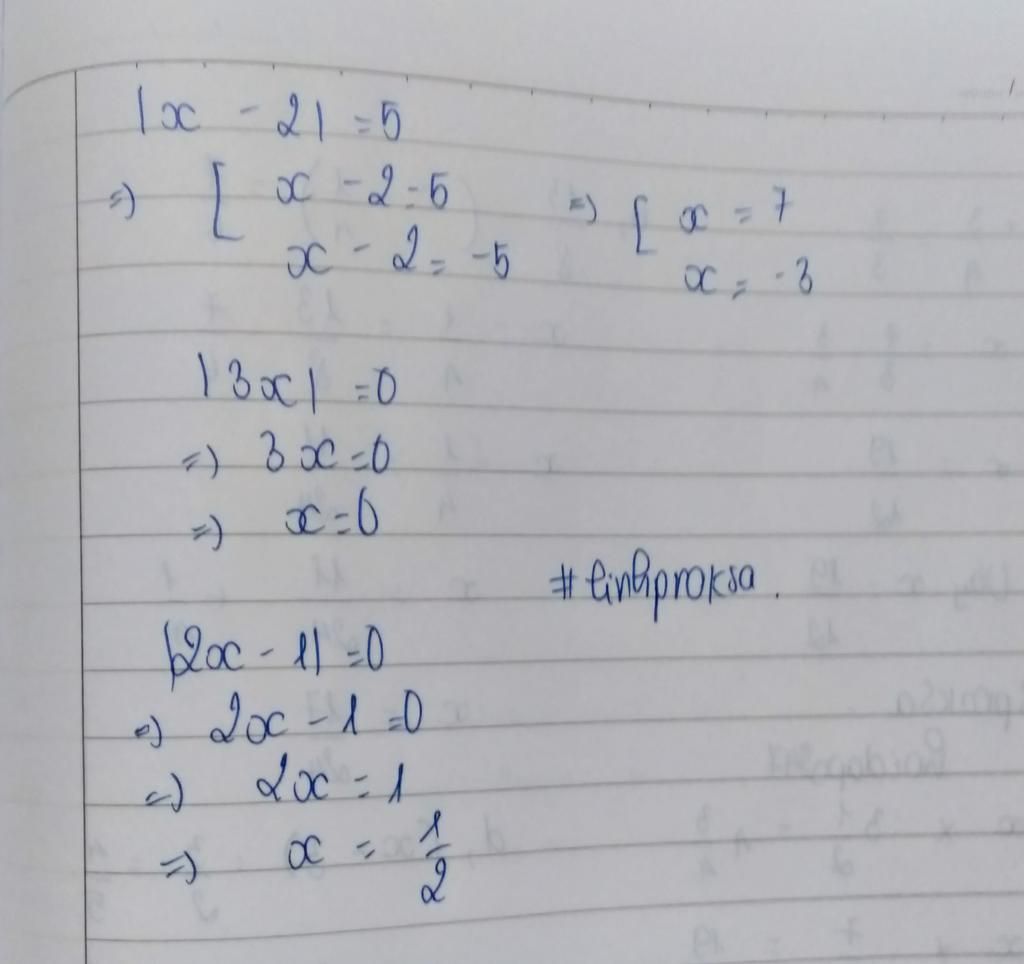 |x - 2| = 5
=> [ x - 2 = 5 => [ x = 7
x - 2 = -5 x = -3
|3x| = 0
=> 3x = 0
=> x = 0
#linhproksa.
|2x - 1| = 0
=> 2x - 1 = 0
=> 2x = 1
=> x = 1/2